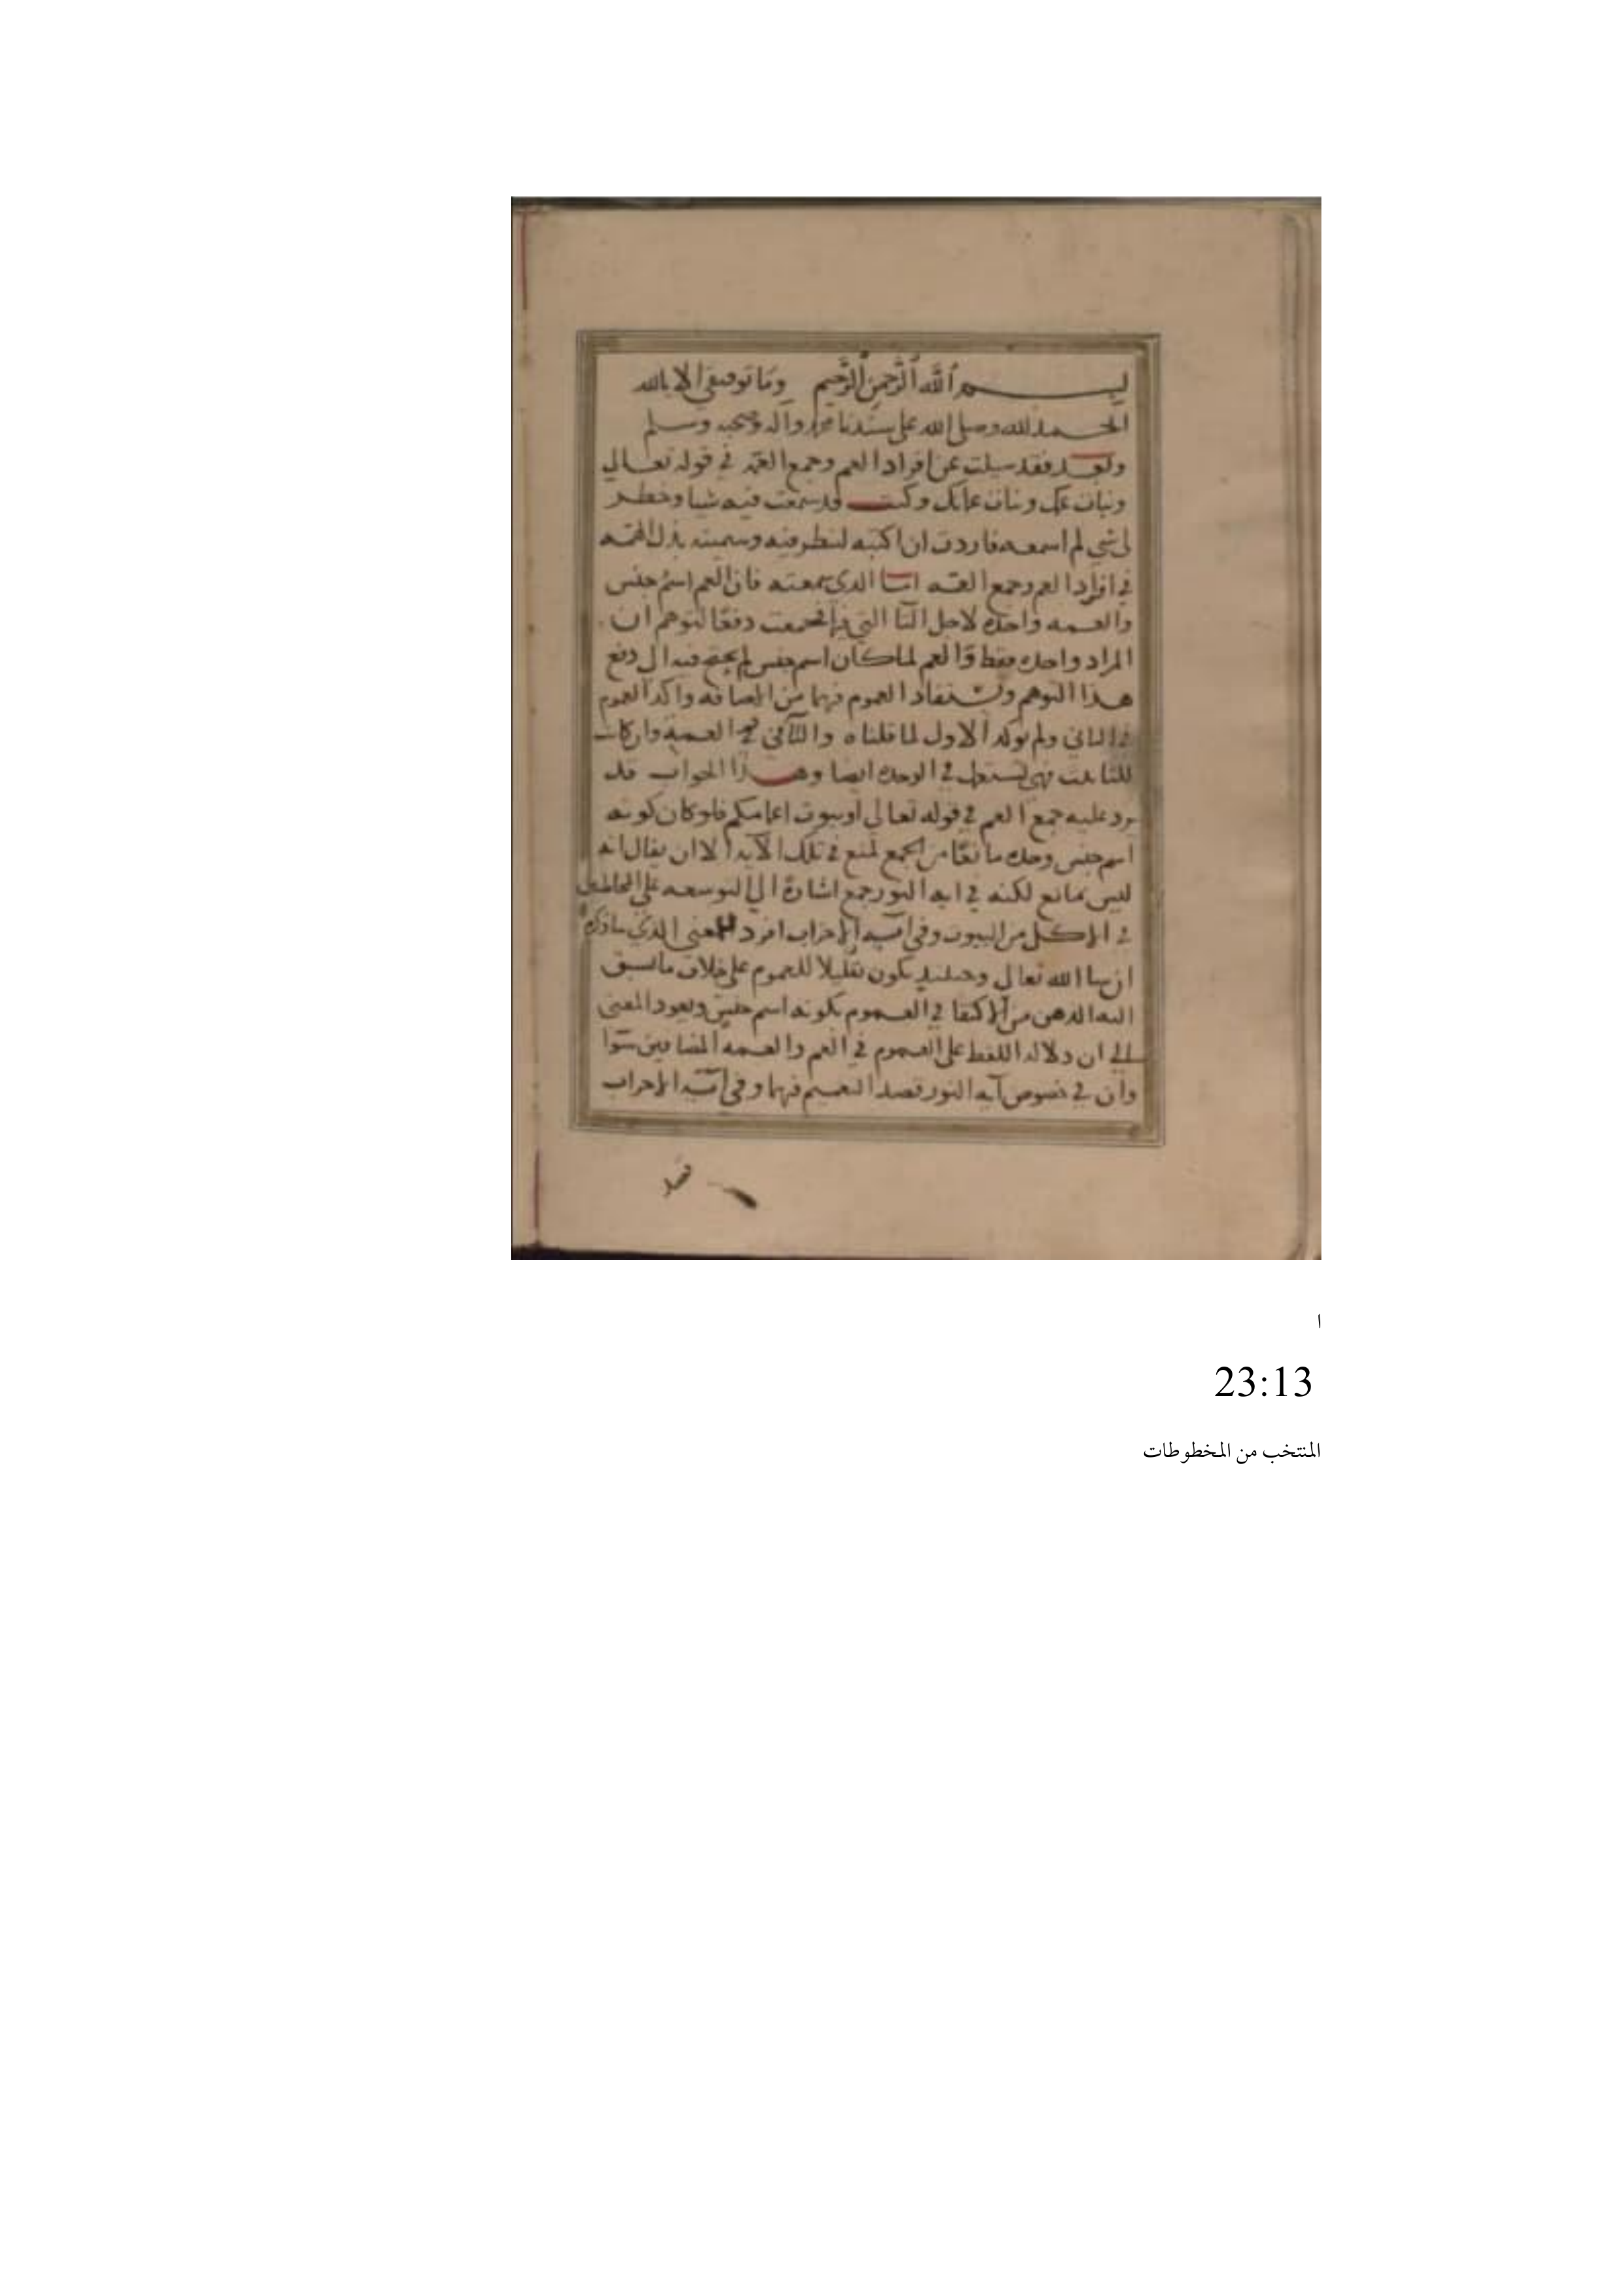 بسم ٱللَّه ٱلرَّحمن ٱلرَّحيم وما توفيقي الا بالله
الحمد لله وصلى الله على سيدنا محمد وآله وصحبه وسلم
وبعد فقد سيلت عن افراد العم وجمع العمه في قوله تعالى
وبنات عمك وبنات عماتك وكنت قد سمعت فيه شيا وخطر
لى شي لم اسمعه فاردت ان اكتبه لينظر فيه وسميته بذل الهمه
في افراد العم وجمع العمه اما الذي سمعته فان العم اسم جنس
والعمه واحده لاجل التا التي فيها فجمعت دفعا لتوهم ان
المراد واحده فقط والعم لما كان اسم جنس لم يحتج فيه الى دفع
هذا التوهم ويستفاد العموم فيهما من الاضافه واكد العموم
في الثاني ولم يوكد الاول لما قلناه والتا في العمة وان كانت
للتانيث فهي تستعمل في الوحده ايضا وهذا الجواب قد
يرد عليه جمع العم في قوله تعالى او بيوت اعمامكم فلو كان كونه
اسم جنس وحده مانعا من الجمع لمنع في تلك الآيه الا ان يقال انه
ليس بمانع لكنه في ايه النور جمع اشارة الى التوسعه على المخاطبين
في الاكل من البيوت وفي آيه الاحزاب افرد للمعنى الذي ساذكره
ان شا الله تعالى وحينيذ يكون تقليلا للعموم على خلاف ما سبق
اليه الذهن من الاكتفا في العموم بكونه اسم جنس ويعود المعنى
الى ان دلاله اللفظ على العموم في العم والعمه المضافين سوا
وان في خصوص آيه النور قصد التعميم فيهما وفي آيه الاحزاب
قصد
ا
23:13
المنتخب من المخطوطات